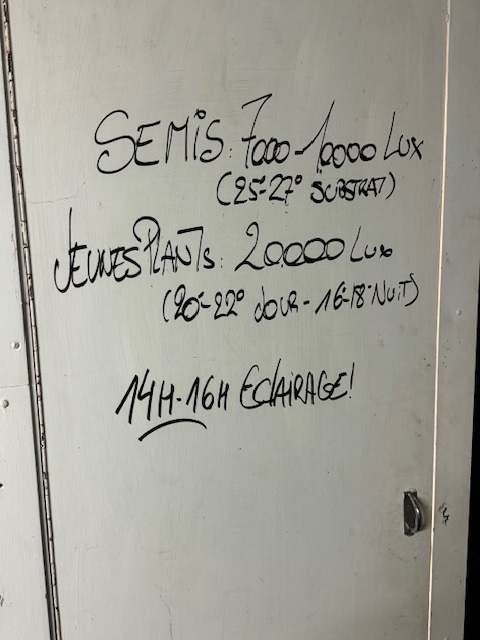 SEMIS: 7000-10000 LUX
(25-27° SUBSTRAT)
JEUNES PLANTS: 20.000 Lux
(20-22° JOUR - 16-18° NUIT)
14H-16H ECLAIRAGE!